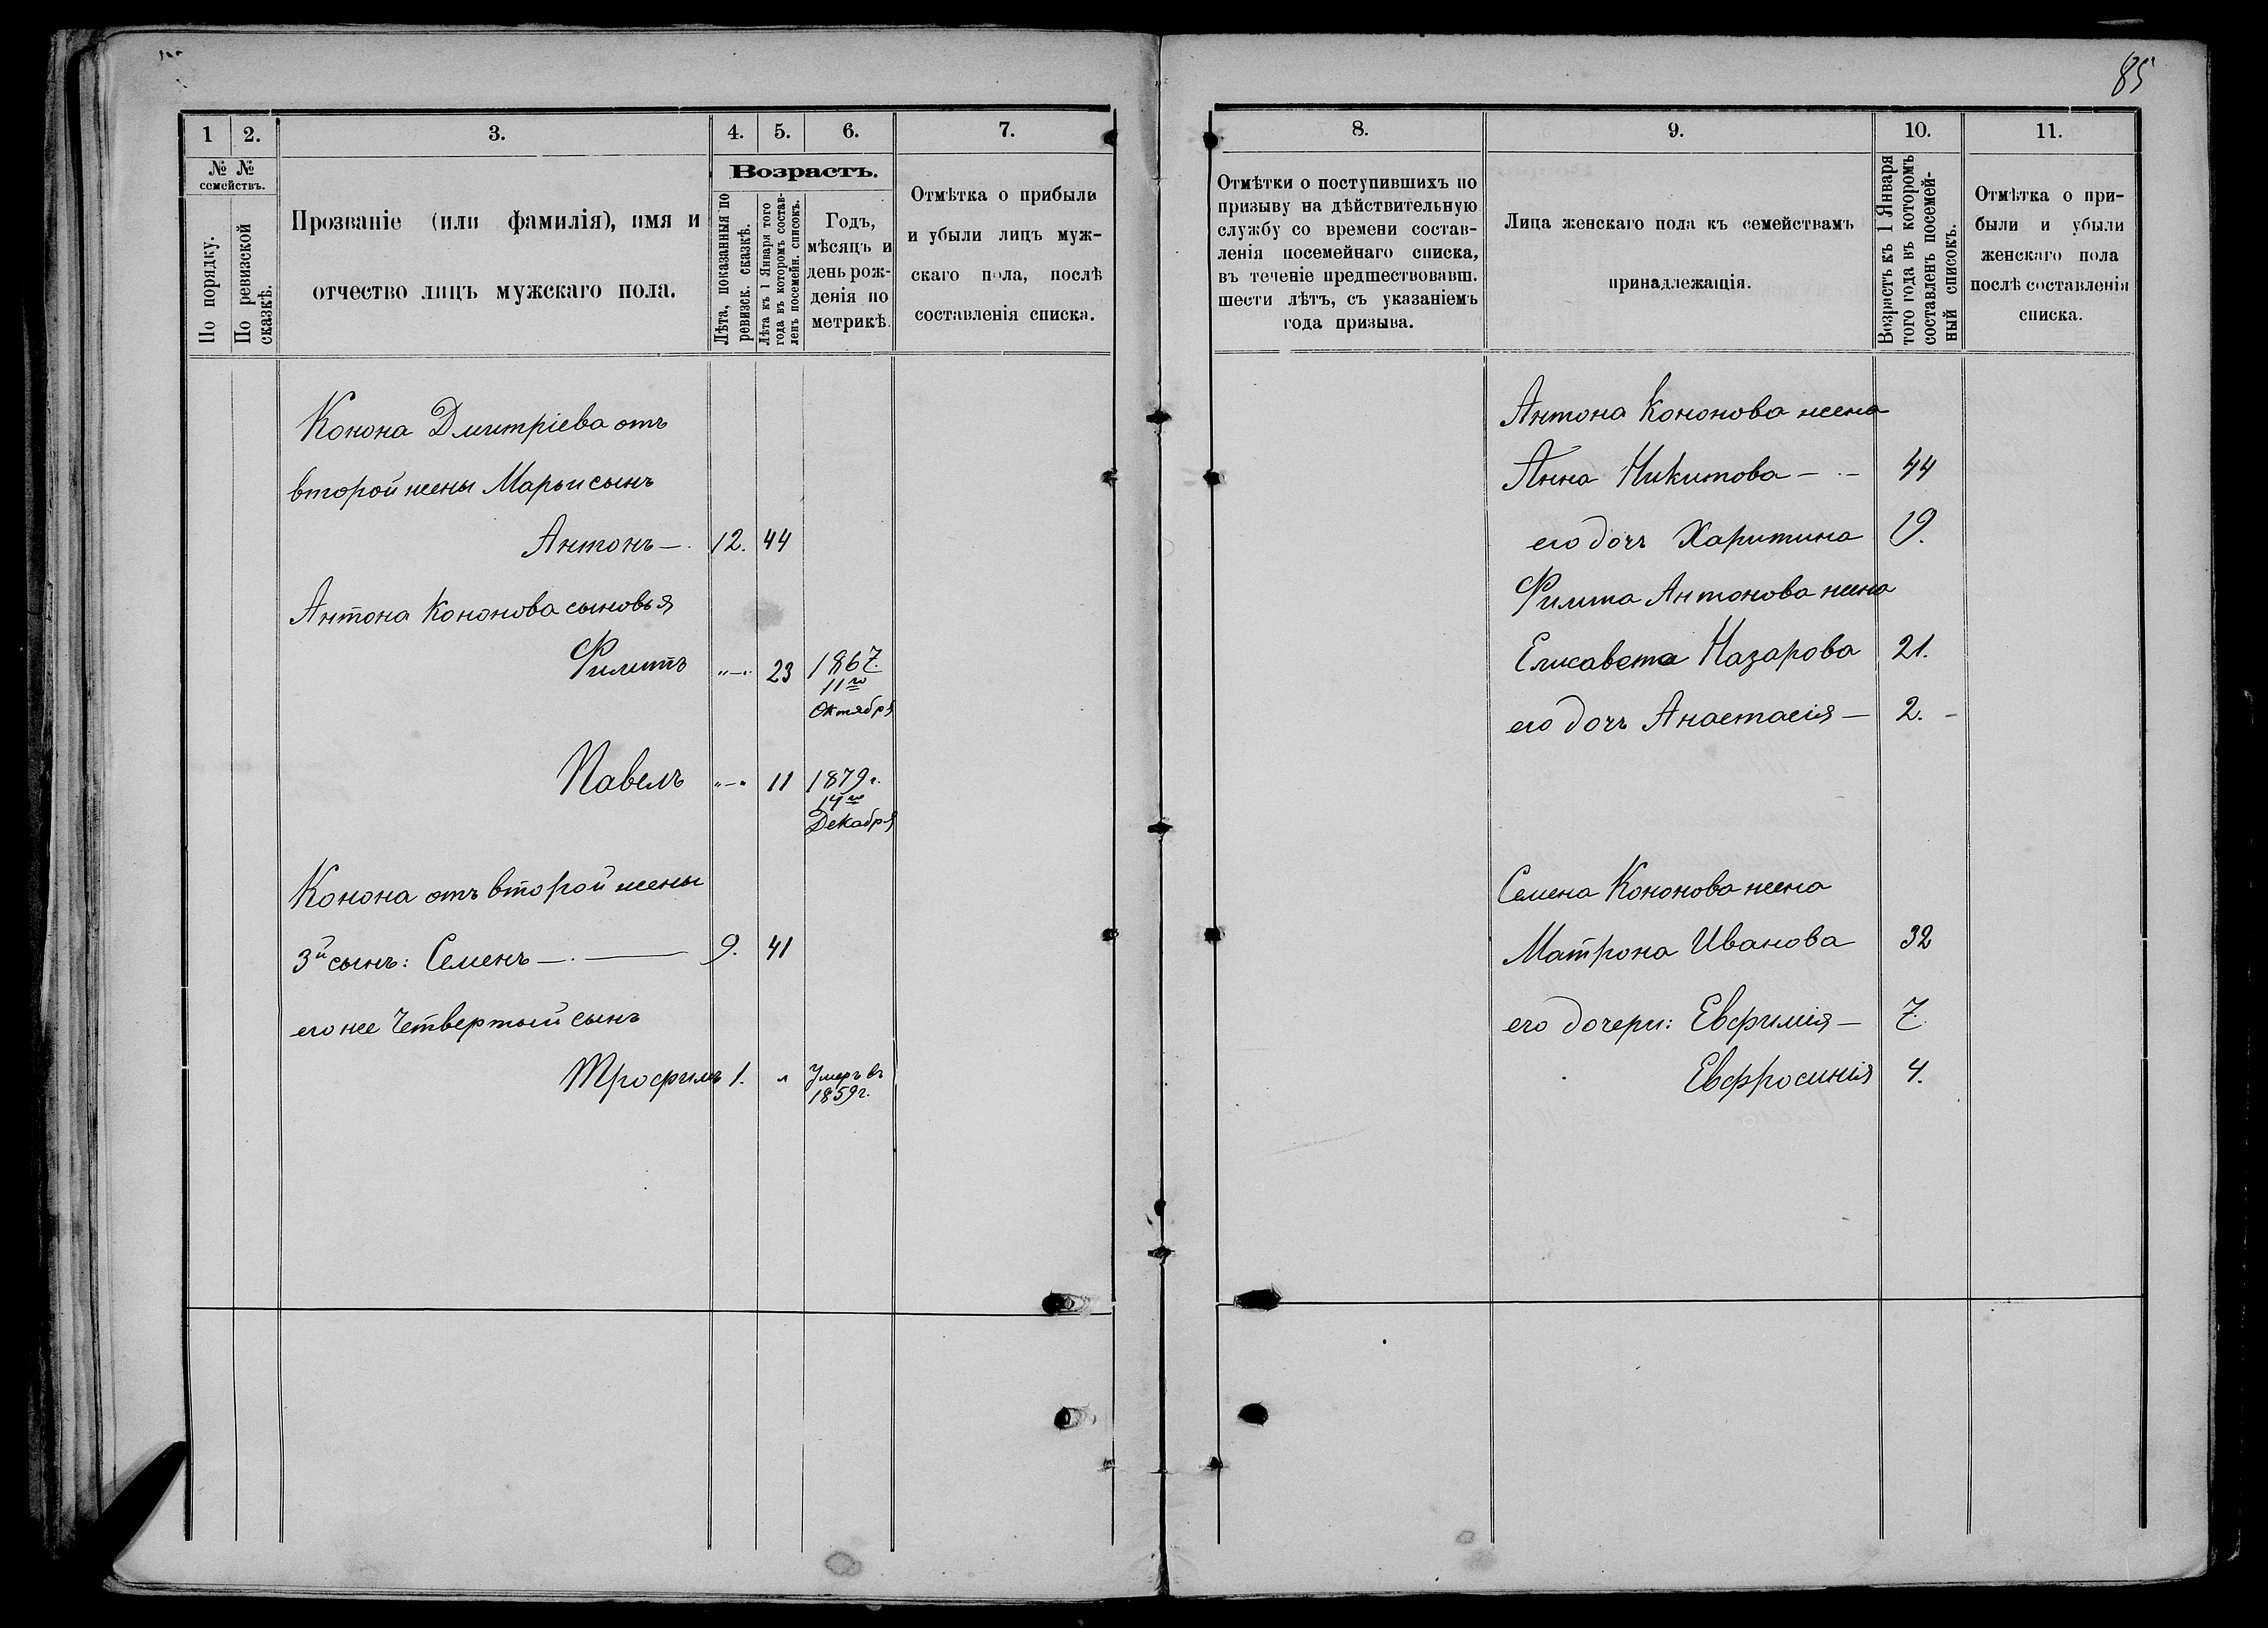 85
1
2.
3.
4.
5.
6.
7.
№ №
семействъ.
По порядку.
По ревизской
сказкѣ.
Прозваніе (или фамилія), имя и
отчество лицъ мужскаго пола.
Возрастъ.
Лѣта, показанныя по
ревизск. сказкѣ.
Лѣта къ 1 Января того
года въ которомъ состав-
ленъ посемейн. списокъ.
Годъ,
мѣсяцъ и
день рож-
денія по
метрикѣ.
Отмѣтка о прибыли
и убыли лицъ муж-
скаго пола, послѣ
составленія списка.
Конона Дмитріева отъ
второй жены Марьи сынъ
Антонъ —. 12. 44
Антона Кононова сыновья
Филиппъ "—" 23 1867.
11го
Октября
Павелъ "—" 11 1879 г.
14го
Декабря
Конона отъ второй жены
3й сынъ: Семенъ —.— 9. 41
его же Четвертый сынъ
Трофимъ 1. " Умеръ въ
1859 г.
8.
9.
10.
11.
Отмѣтки о поступившихъ по
призыву на дѣйствительную
службу со времени состав-
ленія посемейнаго списка,
въ теченіе предшествовавш.
шести лѣтъ, съ указаніемъ
года призыва.
Лица женскаго пола къ семействамъ
принадлежащія.
Возрастъ къ 1 Января
того года въ которомъ
составленъ посемей-
ный списокъ.
Отмѣтка о при-
были и убыли
женскаго пола
послѣ составленія
списка.
Антона Кононова жена
Анна Никитова — . — 44
его дочь Харитина 19.
Филиппа Антонова жена
Елисавета Назарова 21.
его дочь Анастасія — 2. -
Семена Кононова жена
Матрона Иванова 32
его дочери: Евфимія — 7.
Евфросинія 4.